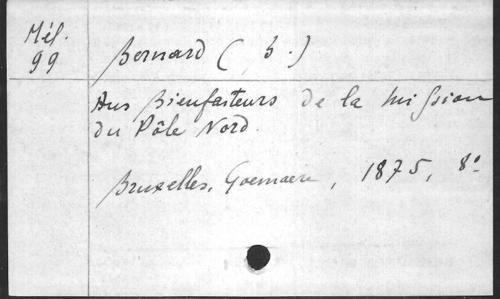 Mél.
99
Bernard ( b.)
Aux Bienfaiteurs de la mission
du Pôle Nord.
Bruxelles, Goemaere, 1875, 8º